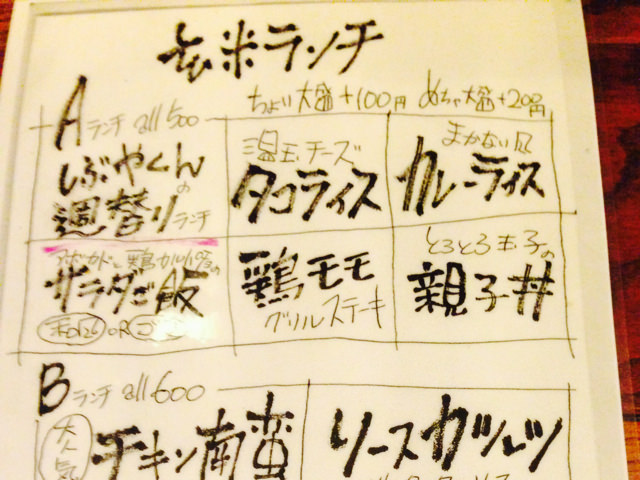 玄米ランチ
ちょい大盛+100円 めちゃ大盛+200円
Aランチ all 500
しぶやくんの
週替りランチ
温玉チーズ
タコライス
まかない風
カレーライス
アボカドと鶏カルパチョの
サラダご飯
OR
鶏モモ
グリルステーキ
とろとろ玉子の
親子丼
Bランチ all 600
大人気
チキン南蛮
ソースカツレツ